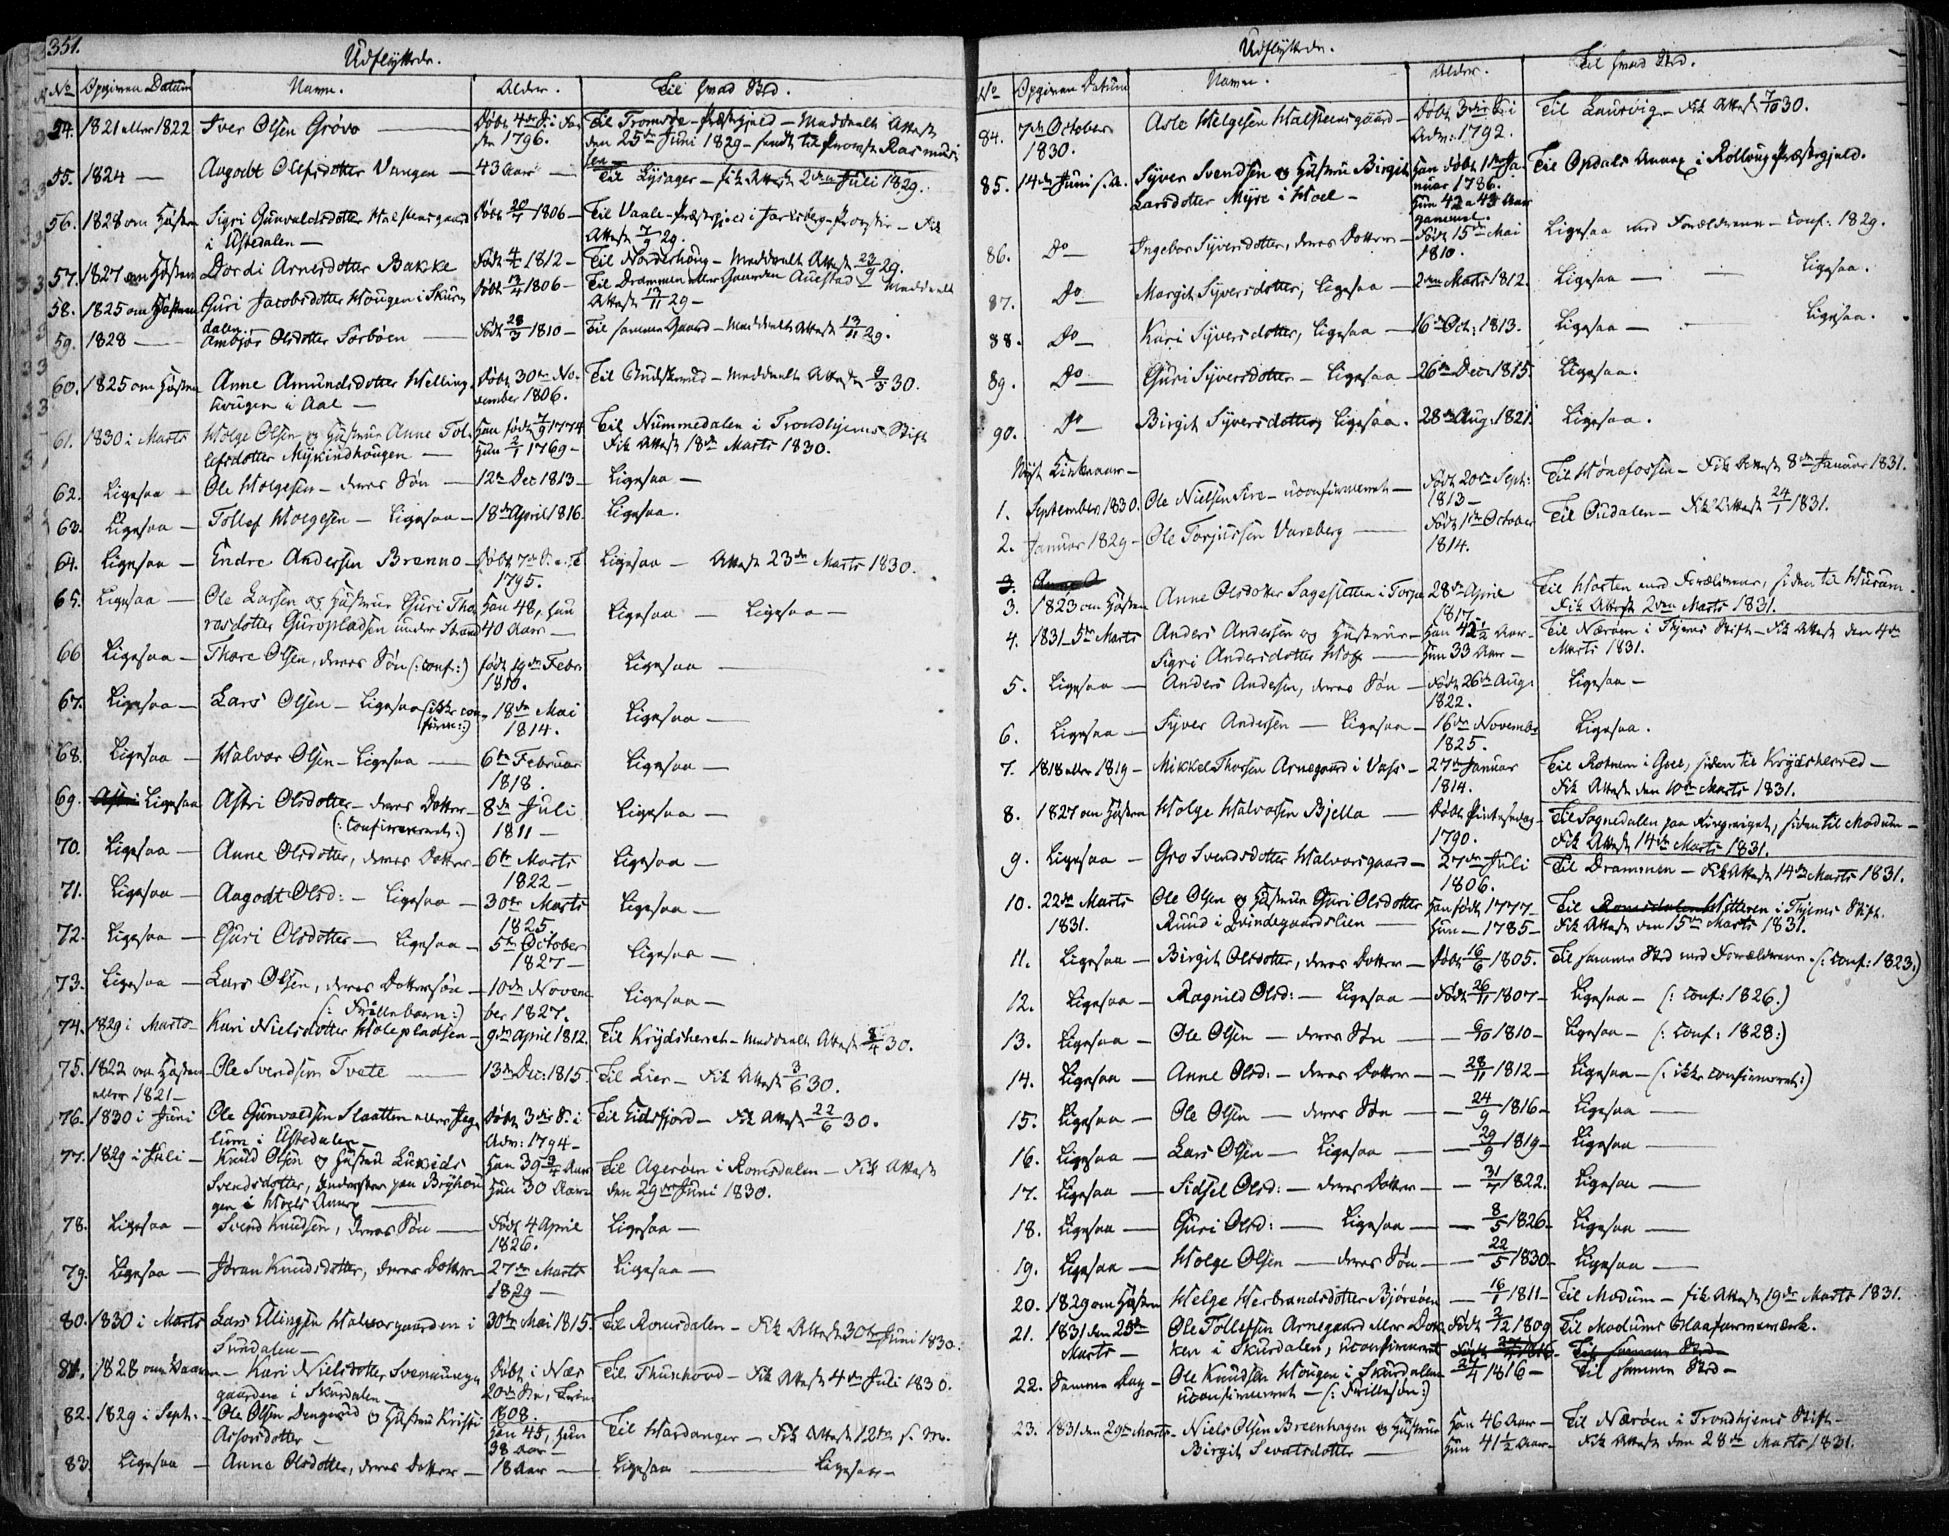 351.
Udflyttede.
No Opgiven Datum Navn. Alder. Til hvad Sted.
54. 1821 eller 1822 Iver Olsen Grøvo — Døbt 4de S. i Fa- Til Tromsøe-Præstegjeld — Meddeelt Attest
ste 1796. den 25de Juni 1829 — sendt til Provst Rasmus-
sen —
55. 1824 — Aagodt Olefsdotter Vangen — 43 Aar — Til Lysager — fik Attest 2den Juli 1829.
56. 1828 om Høsten Sigri Gunvaldsdotter Halstensgaard Døbt 20/1 1806 — Til Vaale-Præstegjeld i Jarlsberg-Provstie — Fik
i Ustedalen — Attest 7/9 29.
57. 1827 om Høsten Dordi Arnesdotter Bakke Født 4/4 1812 — Til Norderhoug — Meddeelt Attest 23/9 29.
58. 1825 om Høsten Guri Jacobsdotter Hougen i Skur- Døbt 13/4 1806 — Til Drammen eller Gaarden Austad — Meddeelt
dalen Attest 13/11 29 —
59. 1828 — Ambjør Olsdotter Sørbøen — Født 28/3 1810 — Til samme Gaard — Meddeelt Attest 13/11 29.
60. 1825 om Høsten Anne Amundsdotter Helling- Døbt 30te No- Til Budskerud — Meddeelt Attest 9/3 30.
hougen i Aal — vember 1806.
61. 1830 i Marts Holge Olsen og Hustrue Anne Tol- Han født 7/9 1774 Til Nummedalen i Trondhjems Stift
lefsdotter Myrindhougen — Hun 2/1 1769 — Fik Attest 18de Marts 1830.
62. Ligesaa — Ole Holgesen — deres Søn — 12te Dec 1813 — Ligesaa —
63. Ligesaa — Tollef Holgesen — Ligesaa — 18de April 1816. Ligesaa.
64. Ligesaa — Endre Andersen Brenno — Døbt 7de S. e. T Ligesaa — Attest 23de Marts 1830.
1795.
65. Ligesaa — Ole Larsen og Hustrue Guri Tho- Han 48, Hun Ligesaa — Ligesaa —
rasdotter Guropladsen under Strand 40 Aar —
66 Ligesaa — Thore Olsen, deres Søn (: conf:) født 19de Febr: Ligesaa —
1810.
67. Ligesaa — Lars Olsen — Ligesaa (: ikke con- 18de Mai Ligesaa —
firm: :) 1814.
68. Ligesaa — Halvor Olsen — Ligesaa — 6te Februar Ligesaa —
1818.
69. Astri Ligesaa Astri Olsdotter — deres Dotter — 8de Juli Ligesaa —
(: confirmeret :) 1811 —
70. Ligesaa — Anne Olsdotter, deres Dotter — 6te Marts Ligesaa —
1822 —
71. Ligesaa — Aagodt Olsd: — Ligesaa — 30te Marts Ligesaa —
1825.
72. Ligesaa — Guri Olsdotter — Ligesaa — 5te October Ligesaa —
1827 —
73. Ligesaa — Lars Olsen, deres Dottersøn — 10de Novem- Ligesaa —
(: Frillebarn :) ber 1827.
74. 1829 i Marts — Kari Nielsdotter Holepladsen — 9de April 1812. Til Krydsherret — Meddeelt Attest 8/4 30.
75. 1822 om Høsten — Ole Svendsen Tvete — 13de Dec: 1815. Til Lier — Fik Attest 3/6 30.
eller 1821 —
76. 1830 i Juni Ole Gunvaldsen Slaatten eller Jeg- Døbt 3die S. i Til Eidsfjord — Fik Attest 22/6 30.
lum i Ustedalen — Adv: 1794 —
77. 1829 i Juli — Knud Olsen og Hustrue Luxids Han 39 3/4 Aar Til Agerøen i Romsdalen — Fik Attest
Svendsdotter, Inderster paa Bryhou- Hun 30 Aar — den 29de Juni 1830.
gen i Hoels Annex —
78. Ligesaa — Svend Knudsen, deres Søn — Født 4 April Ligesaa —
1826.
79. Ligesaa — Jøran Knudsdotter, deres Dotter — 27de Marts Ligesaa —
1829 —
80. 1830 i Marts Lars Ellingsen Halvorsgaarden i 30te Mai 1815. Til Romsdalen — Fik Attest 30te Juni 1830.
Sundalen —
81. 1828 om Vaaren — Kari Nielsdotter Svenkerud- Døbt i Nes Til Thunhovd — Fik Attest 4de Juli 1830.
gaardene i Skurdalen — 20de Søn. e. Trin.
1808.
82. 1829 i Sept: — Ole Olsen Dengerud og Hustrue Kristi Han 45, Hun Til Hardanger — Fik Attest 12te s. M.
Assorsdotter — 38 Aar —
83. Ligesaa — Anne Olsdotter, deres Dotter — 18 Aar — Ligesaa — Ligesaa —
Udflyttede.
No Opgiven Datum Navn. Alder. Til hvad Sted.
84. 7de October Asle Helgesen Halsteensgaard — Døbt 3die S. i Til Laurvig — Fik Attest 7/10 30.
1830. Adv: 1792.
85. 14de Juni s. A. Syver Svendsen og Hustrue Birgit Han født 1ste Ja- Til Opdals Annex i Rollougs Præstegjeld.
Larsdotter Myre i Hoel — nuar 1786.
Hun 42 a 43 Aar
gammel.
86. Do — Ingebor Syversdotter, deres Dotter — Født 15de Mai Ligesaa med Forældrene — Conf: 1829.
1810.
87. Do — Margit Syversdotter, Ligesaa — 2den Marts 1812. Ligesaa — — Ligesaa.
88. Do — Kari Syversdotter, Ligesaa — 16de Oct: 1813. Ligesaa — — Ligesaa.
89. Do — Guri Syversdotter — Ligesaa — 26de Dec: 1815. Ligesaa.
90. Do — Birgit Syversdotter, Ligesaa. 28de Aug: 1821. Ligesaa.
Nyt Kirkeaar —
1. September 1830. Ole Nielsen Fire — uconfirmeret — Født 20de Sept: Til Hønefossen — Fik Attest 8de Januar 1831.
1813 —
2. Januar 1829 — Ole Torjussen Vareberg — Født 1ste October Til Oudalen — Fik Attest 24/1 1831.
1814.
3. Anne O
3. 1823 om Høsten Anne Olsdotter Sagesletten i Torpe 28de April Til Horten med Forældrene, siden til Hurum.
1817. Fik Attest 2den Marts 1831.
4. 1831 5te Marts Anders Andersen og Hustrue — Han 42 1/2 Aar — Til Nærøen i Thjems Stift — Fik Attest den 4de
Sigri Andersdotter — Hun 33 Aar — Marts 1831.
5. Ligesaa — Anders Andersen, deres Søn — Født 26de Aug: Ligesaa —
1822.
6. Ligesaa — Syver Andersen — Ligesaa — 16de Novembr Ligesaa.
1825.
7. 1818 eller 1819 — Mikkel Thorsen Arnegaard i Vass — 27de Januar Til Rotnem i Goel, siden til Krydsherred —
1814. Fik Attest den 10de Marts 1831.
8. 1827 om Høsten Holge Halvorsen Bjella — Døbt Pintsedag — Til Sognedalen paa Ringeriget, siden til Modum —
1790. Fik Attest 14de Marts 1831.
9. Ligesaa — Gro Svendsdotter Halvorsgaard — 27de Juli Til Drammen — Fik Attest 14de Marts 1831.
1806.
10. 22de Marts Ole Olsen og Hustrue Guri Olsdotter Han født 1777 — Til Romsdalen Hitteren i Thjems Stift.
1831. Ruud i Qvindegaardslien — Hun — 1785 — Fik Attest den 15de Marts 1831.
11. Ligesaa — Birgit Olsdotter, deres Dotter — Døbt 16/6 1805. Til samme Sted med Forældrene. (: conf: 1823.)
12. Ligesaa — Ragnild Olsd: — Ligesaa — Født 26/11 1807 — Ligesaa — (: conf: 1826.)
13. Ligesaa — Ole Olsen — deres Søn — 6/10 1810 — Ligesaa — (: conf: 1828:)
14. Ligesaa — Anne Olsd: — deres Dotter — 28/11 1812 — Ligesaa — (: ikke confirmeret :)
15. Ligesaa — Ole Olsen — deres Søn — 24/9 1816 — Ligesaa —
16. Ligesaa — Lars Olsen — Ligesaa — 29/9 1819 — Ligesaa —
17. Ligesaa — Sidsel Olsd: — deres Dotter — 1822. Ligesaa —
18. Ligesaa — Guri Olsd: — Ligesaa — 8/5 1826 — Ligesaa —
19. Ligesaa — Holge Olsen — deres Søn — 22/5 1830 — Ligesaa —
20. 1829 om Høsten Helge Herbrandsdotter Bjørøen — 16/1 1811 — Til Modum — fik Attest 19de Marts 1831.
21. 1831 den 25de Ole Tollefsen Arnegaard eller Dok- Født 2/12 1809 Til Modums Blaafarveværk.
Marts — ken i Skurdalen, uconfirmeret Født 27/4 1816 Til samme Sted
22. Samme Dag — Ole Knudsen Hougen i Skurdalen 27/4 1816 — Til samme Sted —
uconfirmeret — (: Frillesøn :)
23. 1831 den 29de Marts — Niels Olsen Breenhagen og Hustrue Han 46 Aar — Til Nærøen i Trondhjems Stift —
Birgit Sevatsdotter — Hun 41 1/2 Aar — Fik Attest den 28de Marts 1831.